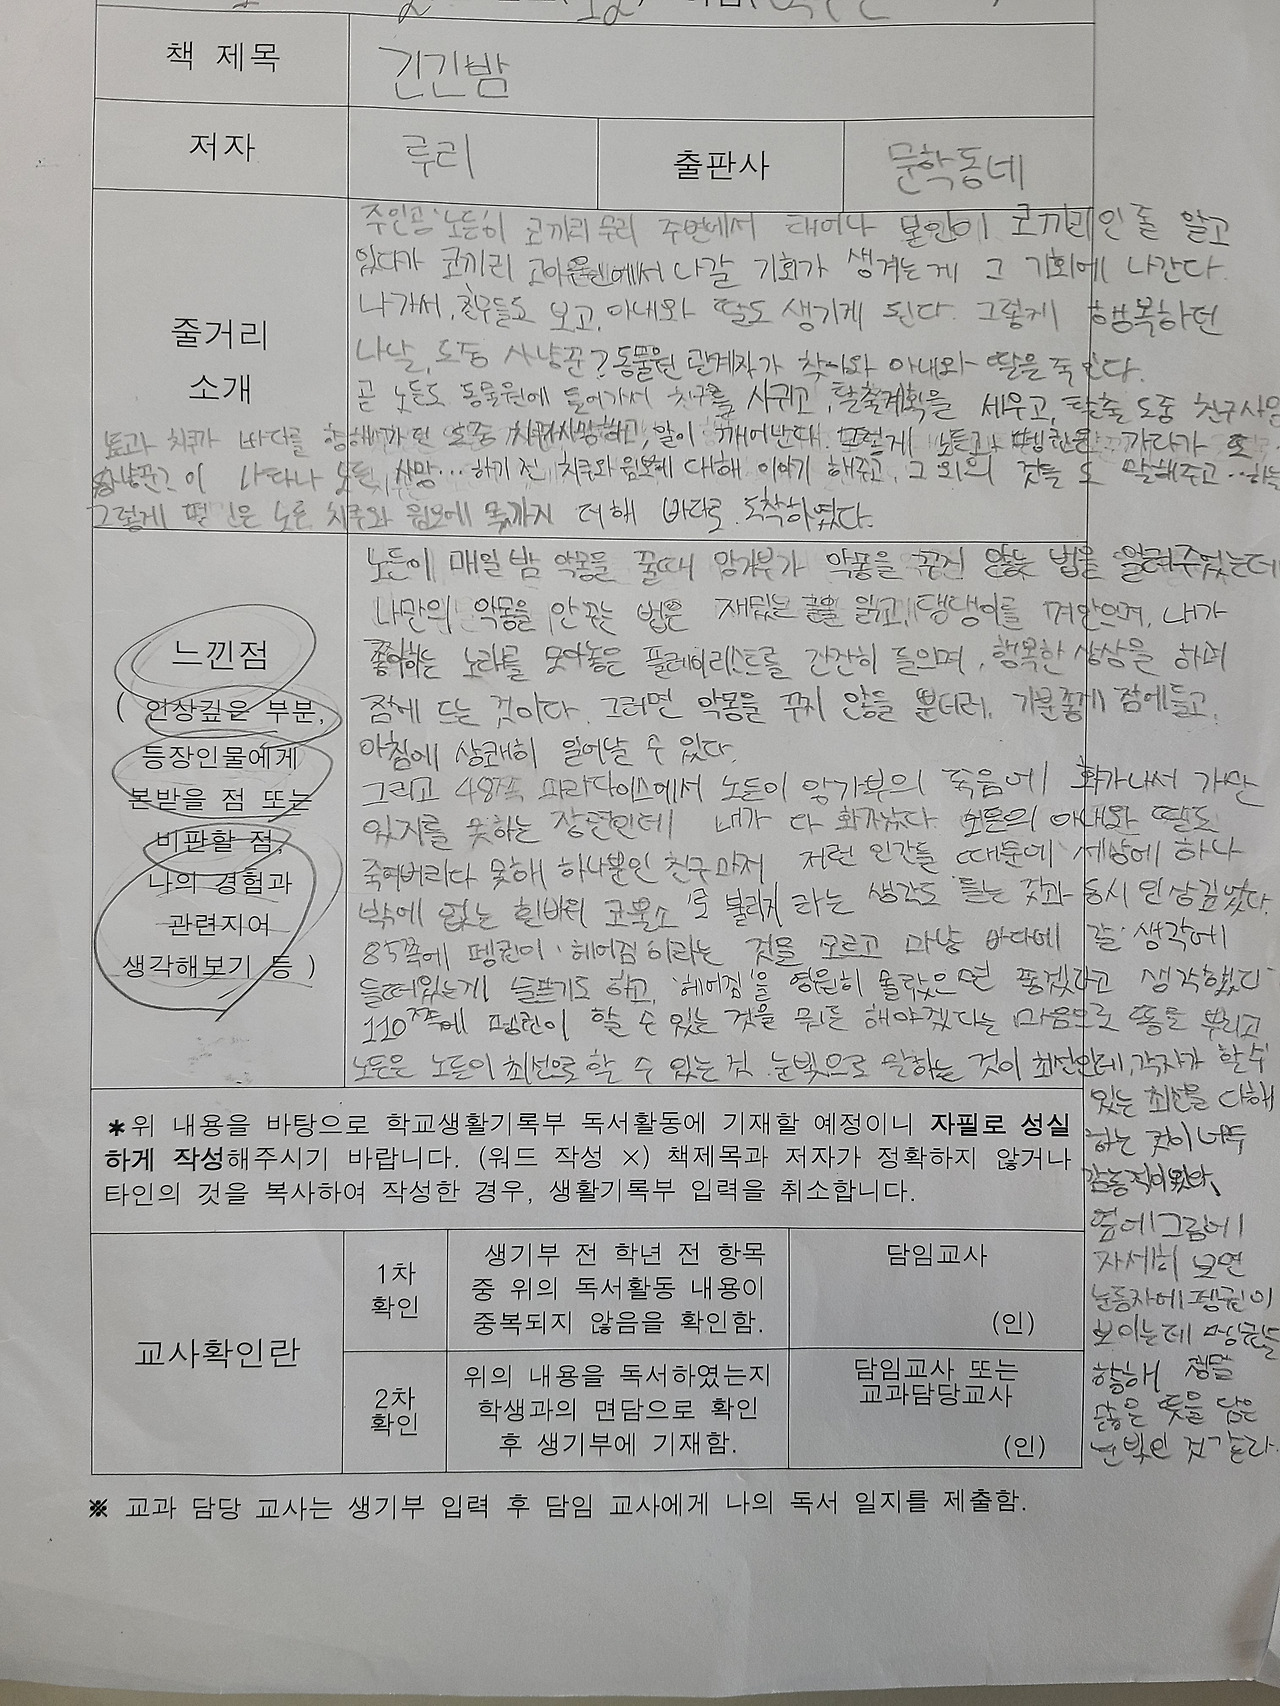 책 제목 긴긴밤
저자 루리 출판사 문학동네
줄거리
소개
주인공 '노든'히 코끼리 무리 주변에서 태어나 본인이 코끼리인 줄 알고
있다가 코끼리 고아원에서 나갈 기회가 생겼는게 그 기회에 나간다.
나가서, 친구들도 보고, 아내와 딸도 생기게 된다. 그렇게 행복하던
나날, 도중 사냥꾼? 동물원 관계자가 찾아와 아내와 딸을 죽인다.
곧 노든도 동물원에 들어가서 친구를 사귀고, 탈출계획을 세우고, 탈출 도중 친구 사망
치쿠가 바다를 향해 가던 도중 사망하고, 알이 깨어난다. 그렇게 노든과 펭귄은 가다가 또
사냥꾼? 이 나타나 노든, 사망... 하기 전 치쿠와 윔보에 대해 이야기 해주고, 그 외의 것들도 말해주고...
그렇게 펭귄은 노든, 치쿠와 윔보에 몫까지 더해 바다로 도착하였다.
느낀점
( 인상깊은 부분,
등장인물에게
본받을 점 또는
비판할 점,
나의 경험과
관련지어
생각해보기 등 )
노든이 매일 밤 악몽을 꿀때 앙가부가 악몽을 꾸진 않는 법을 알려주었는데
나만의 악몽을 안 꾸는 법은 재밌는 글을 읽고, 댕댕이를 껴안으며, 내가
좋아하는 노래를 모아놓은 플레이리스트를 간간히 들으며, 행복한 상상을 하며
잠에 드는 것이다. 그러면 악몽을 꾸지 않을 뿐더러, 기분좋게 잠에들고,
아침에 상쾌히 일어날 수 있다.
그리고 48쪽 파라다이스에서 노든이 앙가부의 죽음에 화가나서 가만
있지를 못하는 장면인데 내가 다 화가났다. 노든의 아내와 딸도
죽여버리다 못해 하나뿐인 친구마저 저런 인간들 때문에 '세상에 하나
밖에 없는 흰바위 코뿔소'로 불리지 라는 생각도 들는 것과 동시 인상깊었다.
85쪽에 펭귄이 '헤어짐'이라는 것을 모르고 마냥 바다에 갈 생각에
들떠있는게 슬프기도 하고, '헤어짐'을 영원히 몰랐으면 좋겠다고 생각했다
110쪽에 펭귄이 할 수 있는 것을 뭐든 해야겠다는 마음으로 똥을 뿌리고
노든은 노든이 최선으로 할 수 있는 것 눈빛으로 말하는 것이 최선인데, 각자가 할 수
있는 최선을 다해
하는 것이 너무
감동적이었다.
옆에 그림에
자세히 보면
눈동자에 펭귄이
보이는데 펭귄을
향해 정말
많은 뜻을 담은
눈빛인 것 같다.
*위 내용을 바탕으로 학교생활기록부 독서활동에 기재할 예정이니 자필로 성실
하게 작성해주시기 바랍니다. (워드 작성 ×) 책제목과 저자가 정확하지 않거나
타인의 것을 복사하여 작성한 경우, 생활기록부 입력을 취소합니다.
교사확인란
1차
확인
생기부 전 학년 전 항목
중 위의 독서활동 내용이
중복되지 않음을 확인함.
담임교사
(인)
2차
확인
위의 내용을 독서하였는지
학생과의 면담으로 확인
후 생기부에 기재함.
담임교사 또는
교과담당교사
(인)
※ 교과 담당 교사는 생기부 입력 후 담임 교사에게 나의 독서 일지를 제출함.